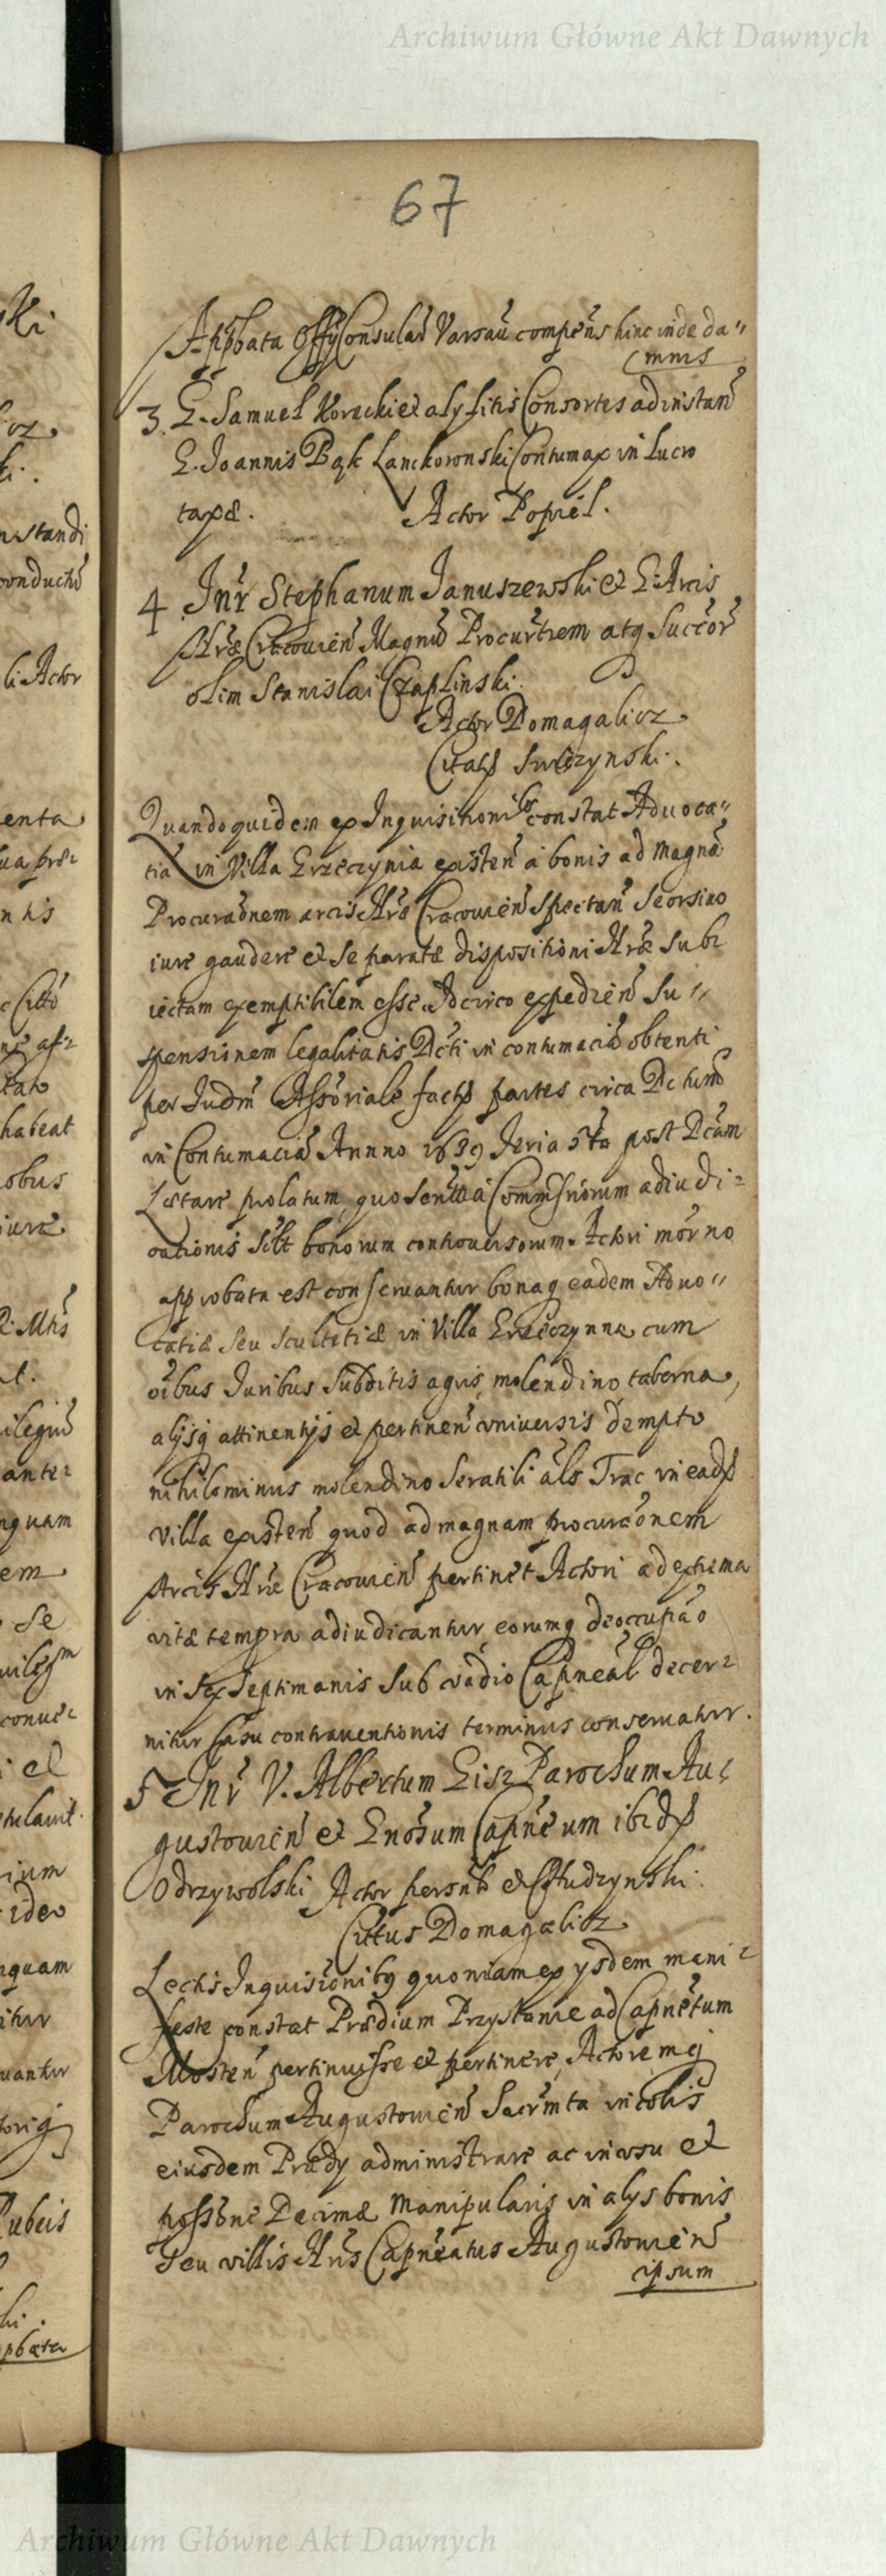 Archiwum Główne Akt Dawnych
67
Appbata Offy Consulař Varsaů compeňs hinc inde da"
mnis
3. G. Samuel Korecki et aly litis Consortes ad instaň
G. Joannis Bąk Lanckoronski Contumax in lucro
taxæ. Actor Popiel.
4 Jnř Stephanum Januszewski et G. Arcis
Hræ Cracovieň Magnů Procurřrem atq Succeř
olim Stanislai Czaplinski.
Actor Domagalicz.
Citatß Swiczynski.
Quandoquidem ex Inquisitionibs constat Advoca"
tiā in Villa Grzeczynia existeň a bonis ad magnā
Procuraōnem arcis Hræ Cracovieň spectaň seorsivo
iure gaudere et separatæ dispositioni Hræ subi
iectam exemptibilem esse. Idcirco expedieň su"
spensionem legalitatis Dcti in contumaciā obtenti
per Judm Assoriale factß partes circa Dctum
in Contumaciā Annno 1639 Feria 5ta post Dcām
Lætare prolatum, quo senttia Commssriorum adiudi=
cationis scltt bonorum controversorum Actori moř no
approbata est conservantur bonaq eadem Advo"
catiæ seu scultetiæ in Villa Grzeczynna cum
oībus Juribus Subditis agris, molendino taberna,
alijsq attinentijs et pertineň universis dempto
nihilominus molendino serratili als Trac in eadß
villa existeň quod ad magnam procuraōnem
Arcis Hræ Cracovieň pertinet Actori ad extrema
vitæ tempra adiudicantur, eorumq deoccupaō
in sex septimanis sub vadio Capneāl decer=
nitur Casu contraventionis terminus conservatur.
5 Jnř V. Albertum Gisz Parochum Au=
gustovieň et Gnosum Capneum ibidß
Odrzywolski Actor persnlr et Chudzynski.
Cittus Domagalicz.
Lectis Inquisionibq quoniam ex ysdem mani=
feste constat Prædium Przystanie ad Capnetum
Mosteň pertinuisse et pertinere, Actoremq
Parochum Augustovieň Sacrmta incolis
eiusdem Prædy administrare ac in usu et
possōne Decimæ Manipularis in alys bonis
seu villis Hris Capneatus Augustovieň
ipsum
Archiwum Główne Akt Dawnych